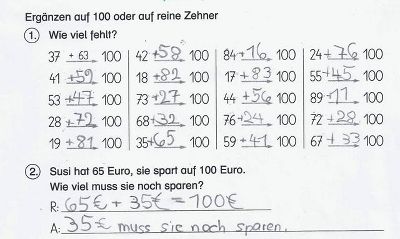 Ergänzen auf 100 oder auf reine Zehner
1. Wie viel fehlt?
37 + 63 100 42 +58 100 84 +16 100 24 +76 100
41 +59 100 18 +82 100 17 +83 100 55 +45 100
53 +47 100 73 +27 100 44 +56 100 89 +11 100
28 +72 100 68 +32 100 76 +24 100 72 +28 100
19 +81 100 35 +65 100 59 +41 100 67 +33 100
2. Susi hat 65 Euro, sie spart auf 100 Euro.
Wie viel muss sie noch sparen?
R: 65€ + 35€ = 100€
A: 35€ muss sie noch sparen.